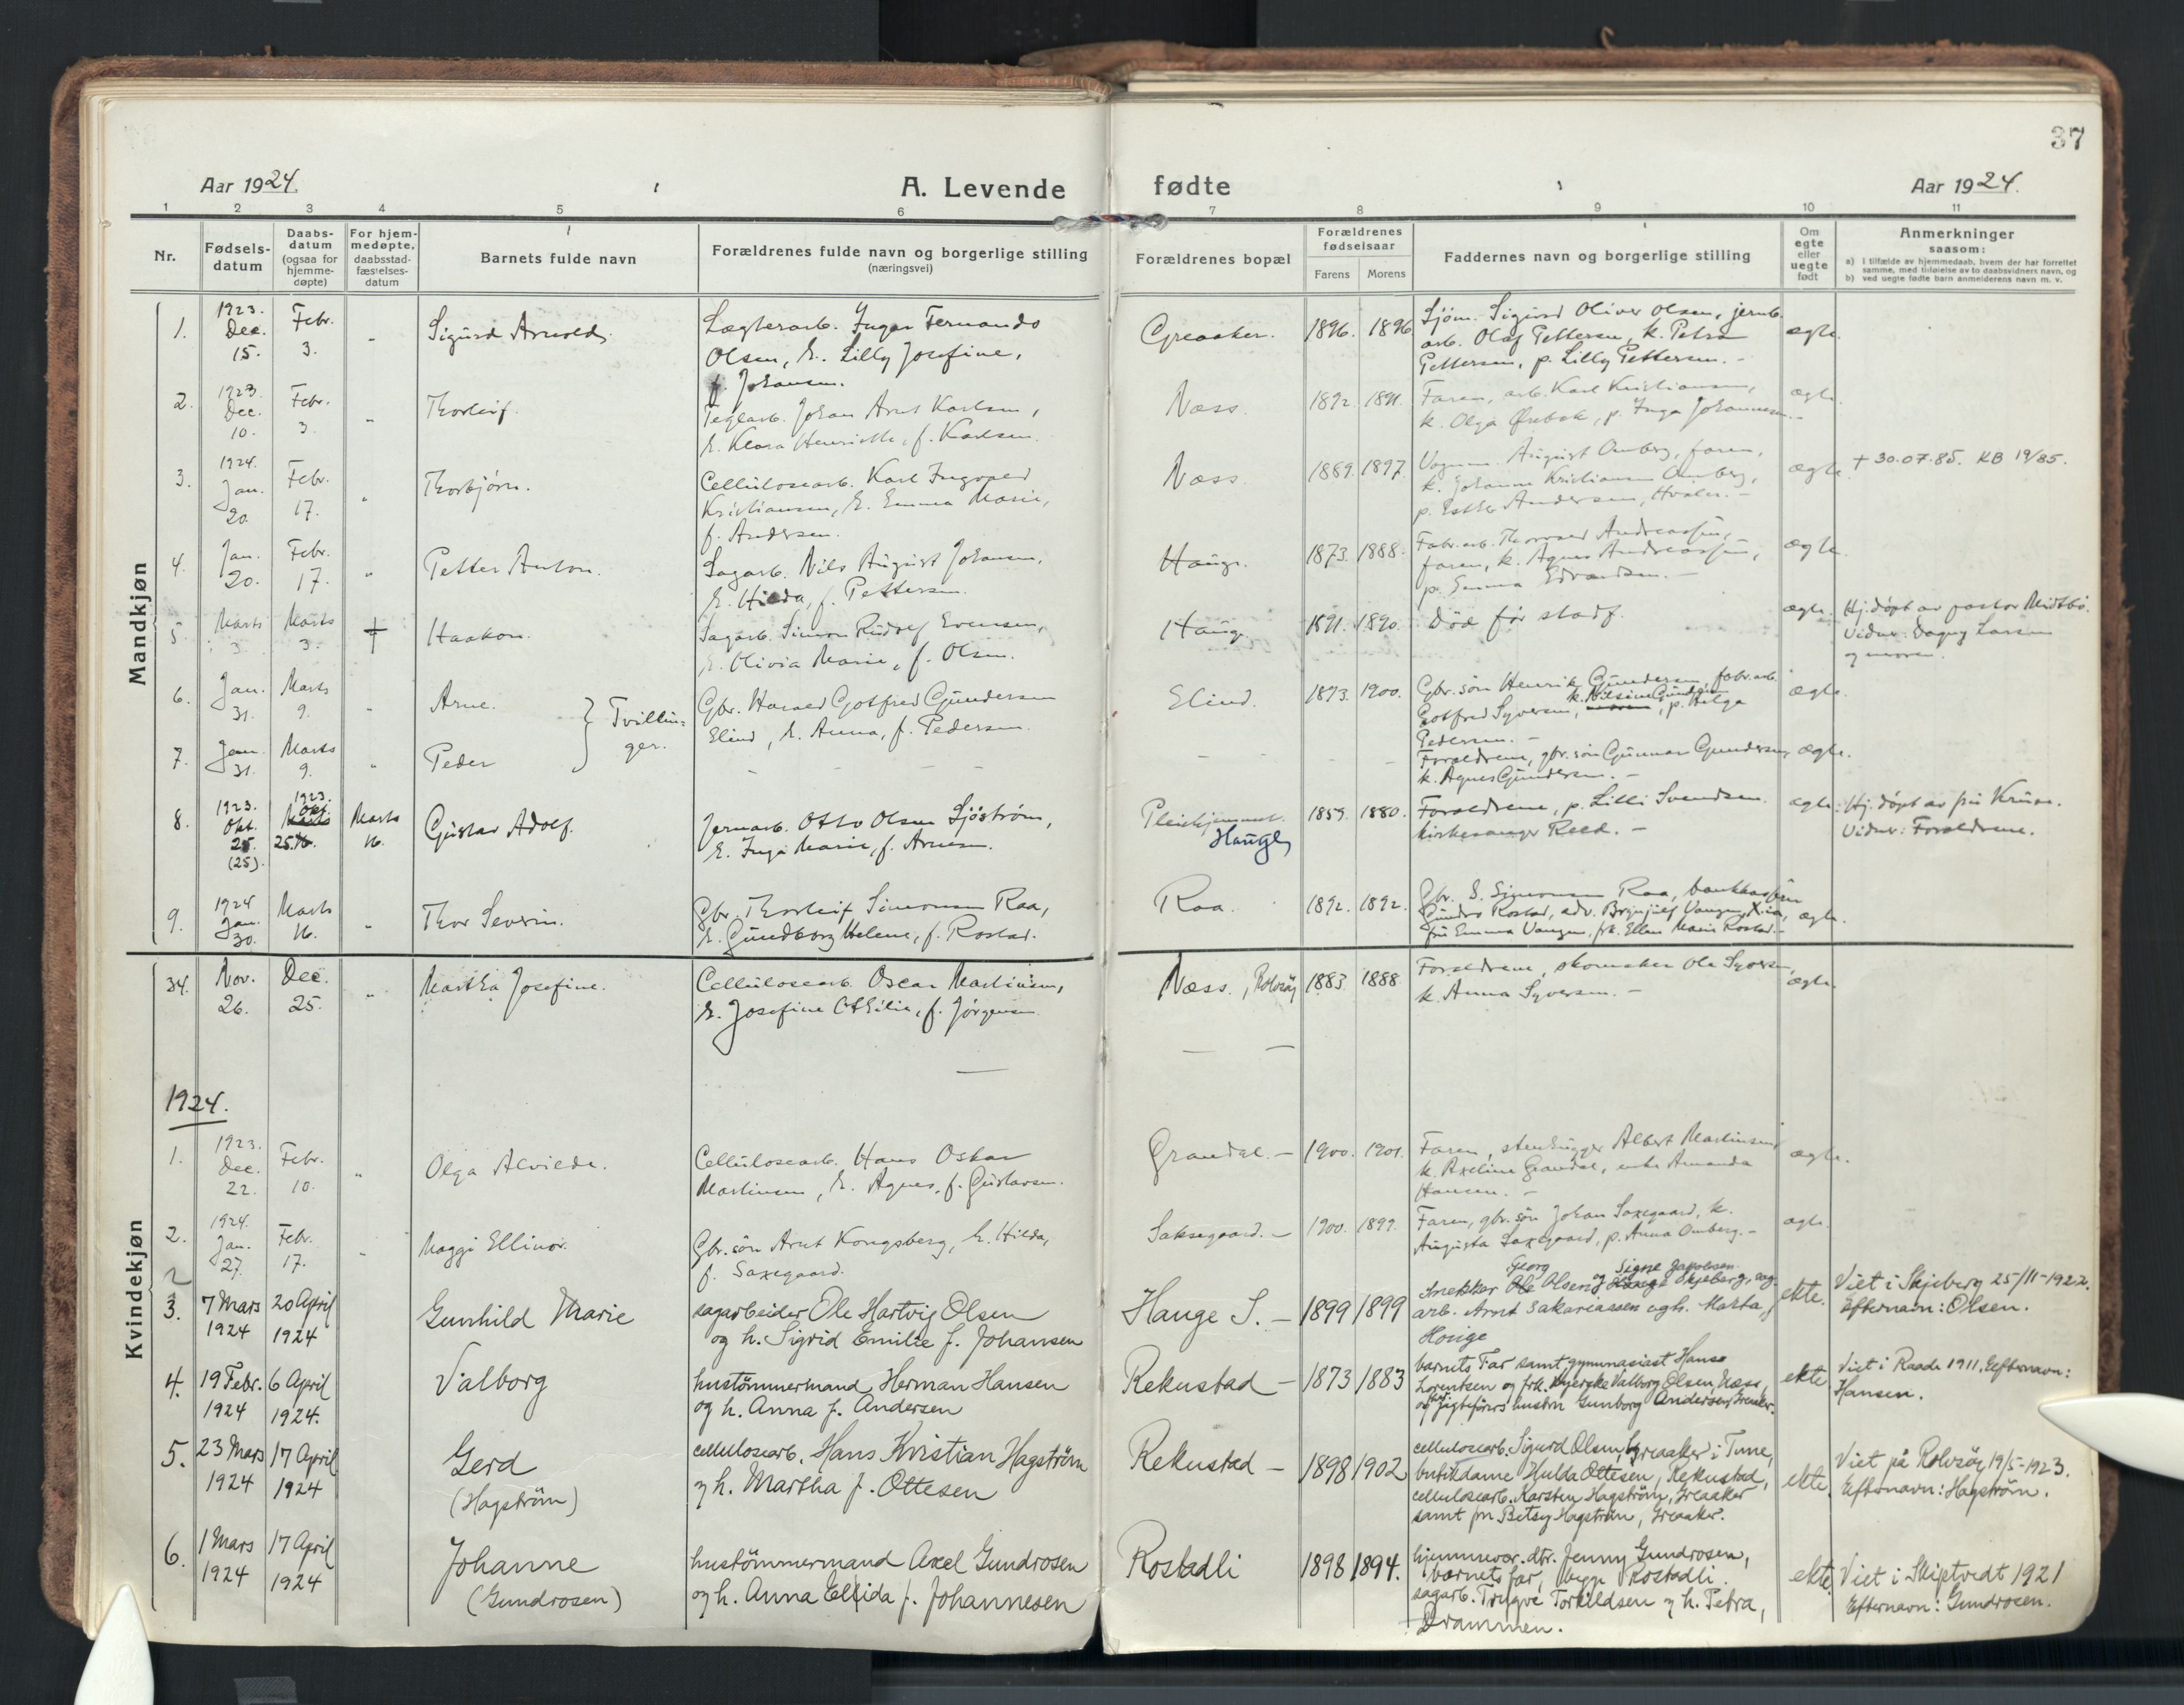 37
Aar 1924.
A. Levende fødte
Aar 1924.
1 2 3 4 5 6 7 8 9 10 11
Nr.
Fødsels-
datum
Daabs-
datum
(ogsaa for
hjemme-
døpte)
For hjem-
medøpte,
daabsstad-
fæstelses-
datum
Barnets fulde navn
Forældrenes fulde navn og borgerlige stilling
(næringsvei)
Forældrenes bopæl
Forældrenes
fødselsaar
Farens Morens
Faddernes navn og borgerlige stilling
Om
egte
eller
uegte
født
Anmerkninger
saasom:
a) i tilfælde av hjemmedaab, hvem der har forrettet
samme, med tilføielse av to daabsvidners navn, og
b) ved uegte fødte barn anmelderens navn m. v.
Mandkjøn
1.
1923.
Dec.
15.
Febr.
3.
Sigurd Arnold.
Lægterarb. Ingar Fernando
Olsen, h. Lilly Josefine,
f. Johansen.
Greaaker.
1896. 1896
Sjöm. Sigurd Oliver Olsen, jernb.
arb. Olaf Pettersen, k. Petra
Pettersen, p. Lilly Pettersen. -
ægte.
2.
1923
Dec.
10.
Febr.
3.
Thorleif.
Teglarb. Johan Arnt Karlsen,
h. Klara Henriette, f. Karlsen.
Næss.
1892. 1891.
Faren, arb. Karl Kristiansen,
k. Olga Örebek, p. Inga Johannesen. -
ægte.
3.
1924.
Jan.
20.
Febr.
17.
Thorbjørn.
Cellulosearb. Karl Ingvald
Kristiansen, h. Emma Marie,
f. Andersen.
Næss.
1889. 1897.
August Omberg, faren,
k. Johanne Kristiansen Omberg,
p. Esther Andersen, Hvaler. -
ægte.
+ 30.07.85. KB 19/85.
4.
Jan.
20.
Febr.
17.
Petter Anton.
Sagarb. Nils August Johansen,
h. Hilda, f. Pettersen.
Haug.
1873. 1888.
Fabr.arb. Thorvald Andreassen,
faren, k. Agnes Andreassen,
p. Emma Edvardsen. -
ægte.
5
Marts
3.
Marts
3.
†
Haakon.
Sagarb. Simon Rudolf Evensen,
h. Olivia Marie, f. Olsen.
Haug.
1891. 1890.
Död för stadf.
ægte.
Hj.döpt av pastor Midtbö.
Vidner: Dagny Larsen
og moren.
6.
Jan.
31.
Marts
9.
Arne.
} Tvillin-
ger.
Gbr. Harald Gotfred Gundersen
Elind, h. Anna, f. Pedersen.
Elind.
1893. 1900.
Gbr.sön Henrik Gundersen, fabr.arb.
Gotfred Syversen, k. Nilsine Gundersen, p. Helga
Pedersen. -
ægte.
7.
Jan.
31.
Marts
9.
Peder
Foreldrene, gbr.sön Gunnar Gundersen,
k. Agnes Gundersen. -
ægte.
8.
1923.
Okt.
25.
(25).
1923.
Okt.
25.
Marts
16.
Gustav Adolf.
Jernarb. Otto Olsen Sjöström,
h. Inga Marie, f. Arnesen.
Pleiehjemmet.
Haugh
1859. 1880.
Foreldrene, p. Lilli Svendsen.
kirkesanger Reed. -
ægte.
Hj.döpt av fru Kruse.
Vidner: Foreldrene.
9.
1924
Jan.
30.
Marts
16.
Thor Severin.
Gbr. Thorleif Simonsen Raa,
h. Gundborg Helene, f. Rostad.
Raa.
1892. 1892.
Gbr. S. Simonsen Raa,
Rostad, adv. Brynjulf Vangen, X.ia,
fru Emma Vangen, frk. Ellen Marie Rostad. -
ægte.
Kvindekjøn
34.
Nov.
26.
Dec.
25.
Martha Josefine.
Cellulosearb. Oscar Martinsen,
h. Josefine Othilie, f. Jörgensen.
Næss., Rolvsöy
1883. 1888.
Foreldrene, skomaker Ole Syversen,
k. Anna Syversen. -
ægte.
1924.
1.
1923.
Dec.
22.
Febr.
10.
Olga Alvilde.
Cellulosearb. Hans Oskar
Martinsen, h. Agnes, f. Gustavsen.
Grandal. -
1900. 1901.
Faren, stenhugger Albert Martinsen,
k. Axeline Grandal, enke Amanda
Hansen. -
ægte.
2.
1924.
Jan.
27.
Febr.
17.
Maggi Ellinor.
Gbr.sön Arnt Kongsberg, h. Hilda,
f. Saxegaard.
Saksegaard. -
1900. 1899.
Faren, gbr.sön Johan Saxegaard, k.
Augusta Saxegaard, p. Anna Omberg. -
ægte.
3.
7 Mars
1924
20 April
1924
Gunhild Marie
sagarbeider Ole Hartvig Olsen
og h. Sigrid Emilie f. Johansen
Hauge S. -
1899 1899
Georg Signe Jakobsen
Snekker Olsen og Skjeberg,
arb. Arnt Sakariassen og h. Marta,
Hauge
ekte.
Viet i Skjeberg 25/11-1922.
Efternavn: Olsen.
4.
19 Febr.
1924
6 April
1924.
Valborg
hustömmermand Herman Hansen
og h. Anna f. Andersen
Rekustad -
1873 1883
barnets Far samt gymnasiast Hans
Lorentsen og frk. Valborg Olsen, Næss,
og jagtförers hustru Gunborg Andersen, Greaaker.
ekte
Viet i Raade 1911. Efternavn:
Hansen.
5.
23 Mars
1924
17 April
1924
Gerd
(Hagström)
cellulosearb. Hans Kristian Hagström
og h. Martha f. Ottesen
Rekustad -
1898 1902
cellulosearb. Sigurd Olsen, Greaaker i Tune,
butikdame Hulda Ottesen, Rekustad,
cellulosearb. Karsten Hagström, Greaaker
samt fru Betsy Hagström, Greaaker.
ekte.
Viet på Rolvsöy 19/5-1923.
Efternavn: Hagström.
6.
1 Mars
1924
17 April
1924
Johanne
(Gundrosen)
hustömmermand Axel Gundrosen
og h. Anna Elida f. Johannesen
Rostadli
1898 1894.
hjemmevær. dtr. Jenny Gundrosen,
barnets far, begge Rostadli.
sagarb. Trygve Torkildsen og h. Petra,
Drammen.
ekte
Viet i Skiptvedt 1921
Efternavn: Gundrosen.